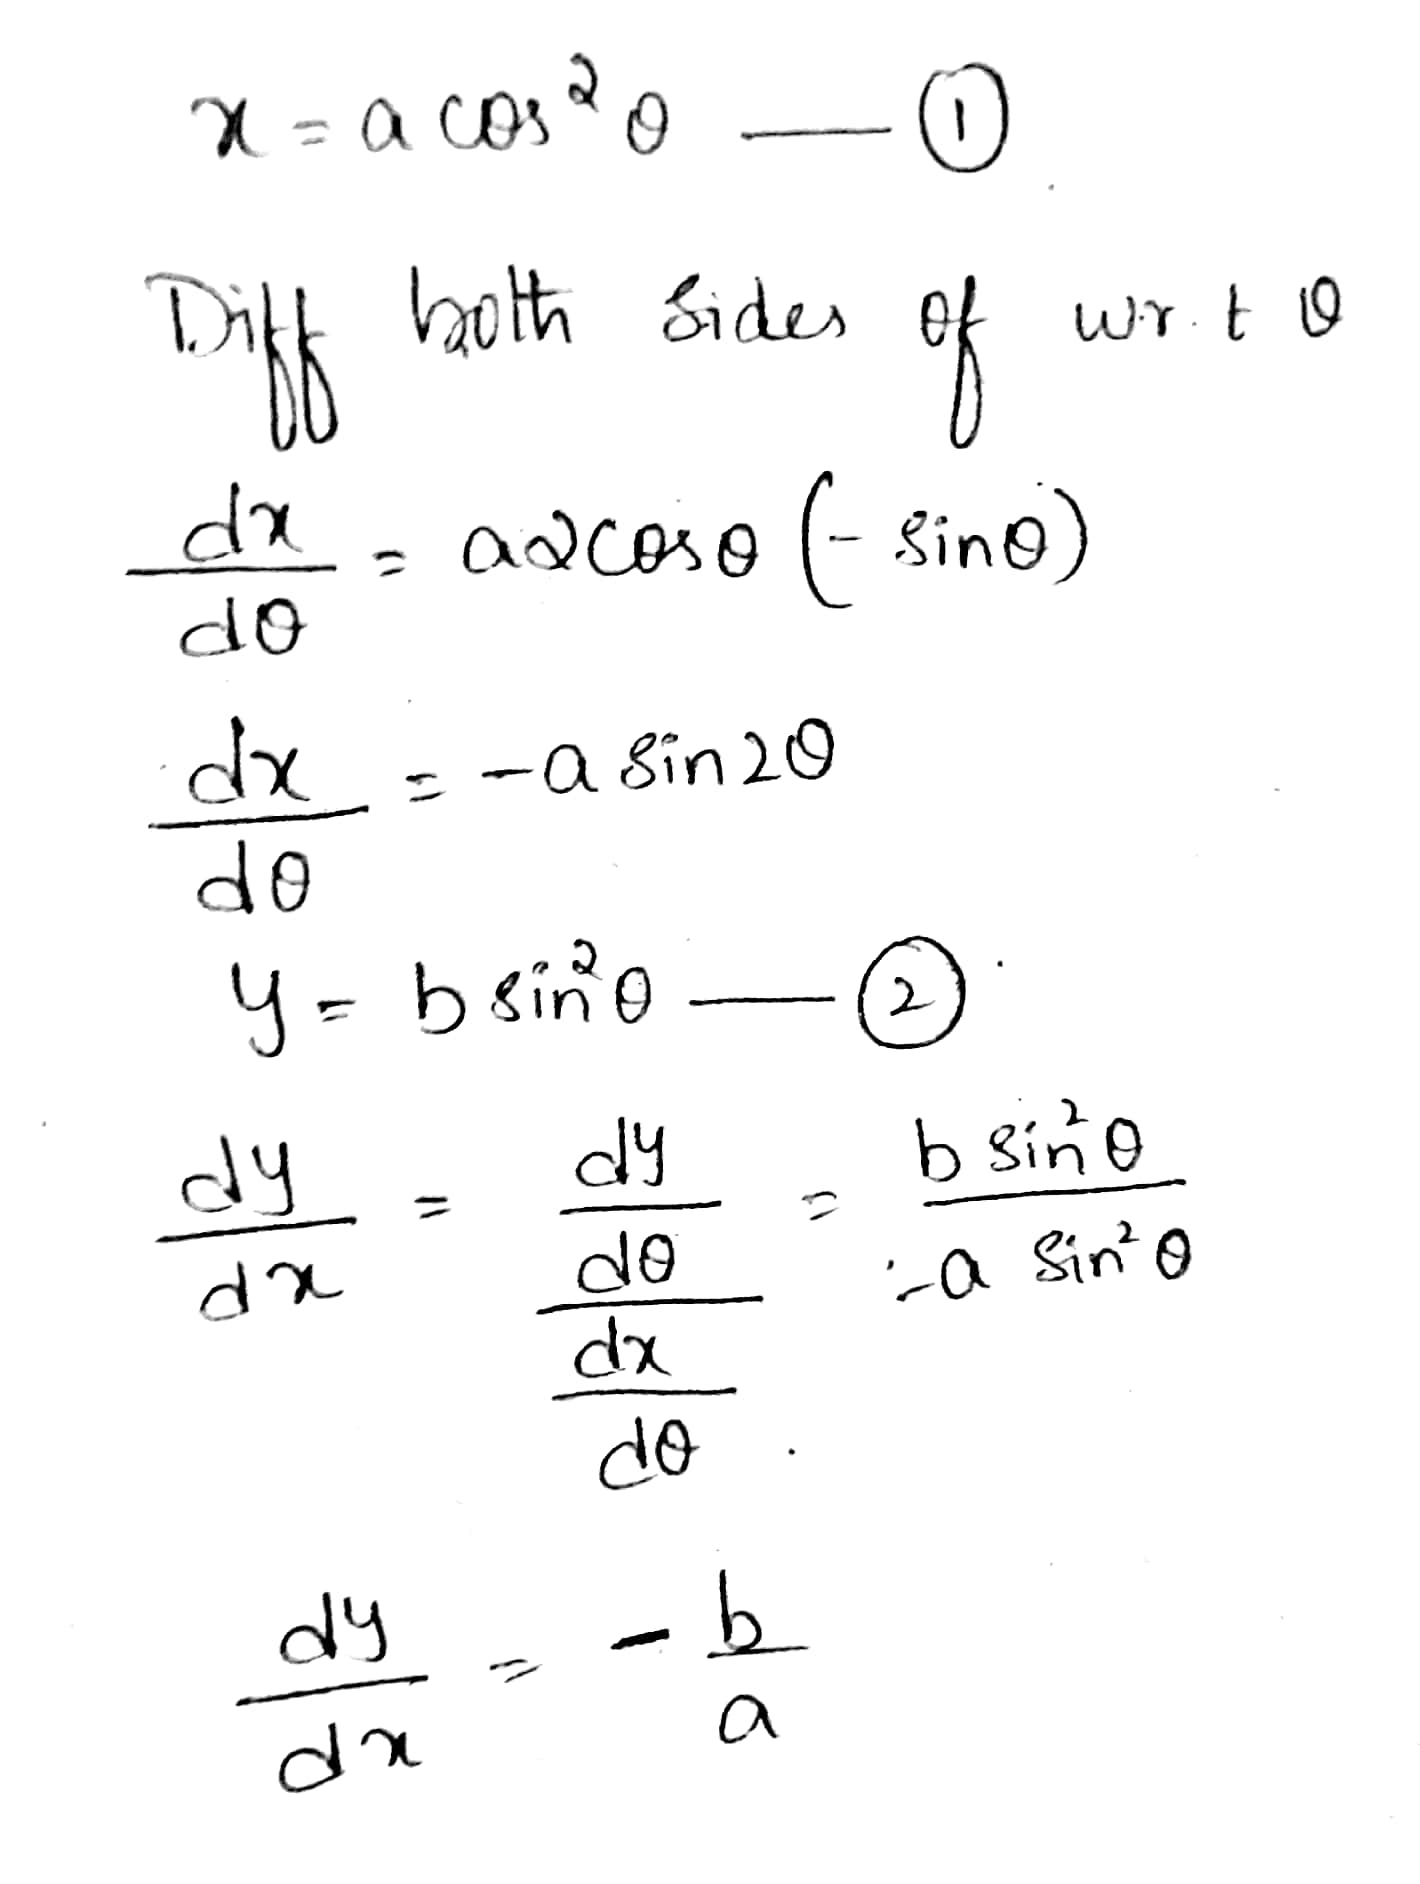 x = a cos²θ — ①
Diff both sides of w.r.t θ
dx/dθ = a2cosθ (- sinθ)
dx/dθ = -a sin2θ
y = b sin²θ — ②
dy/dx = dy/dθ / dx/dθ = b sin²θ / -a sin²θ
dy/dx = - b/a